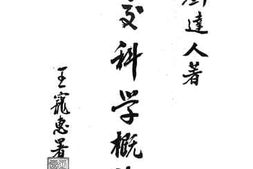 達人著
交科学概
王寵惠署